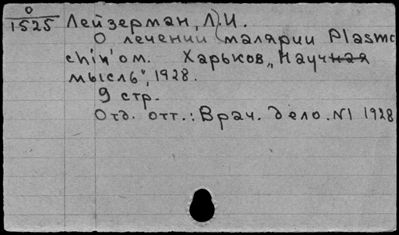 О
1525
Лейзерман, Л.И.
О лечении малярии Plasmo
chin'ом. Харьков, „Научная
мысль", 1928.
9 стр.
Отд. отт.: Врач. дело. №1 1928